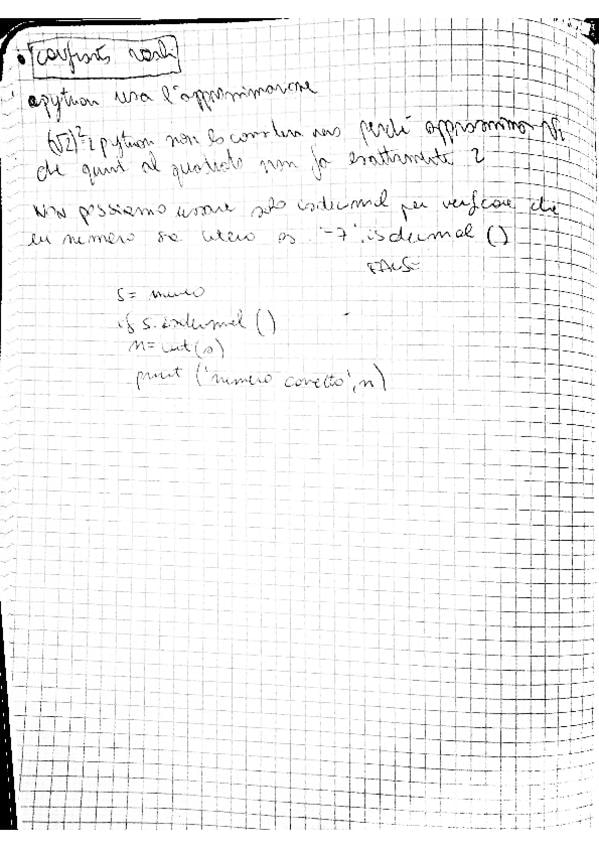 confronto reali
python usa l'approssimazione
(√2)²=2 python non lo considera vero perché approssima √2
che quindi al quadrato non fa esattamente 2
Non possiamo usare solo isdecimal per verificare che
un numero sia intero es. '-7'.isdecimal ()
FALSE
s = numero
if s.isdecimal ()
n = int(s)
print ('numero corretto', n)